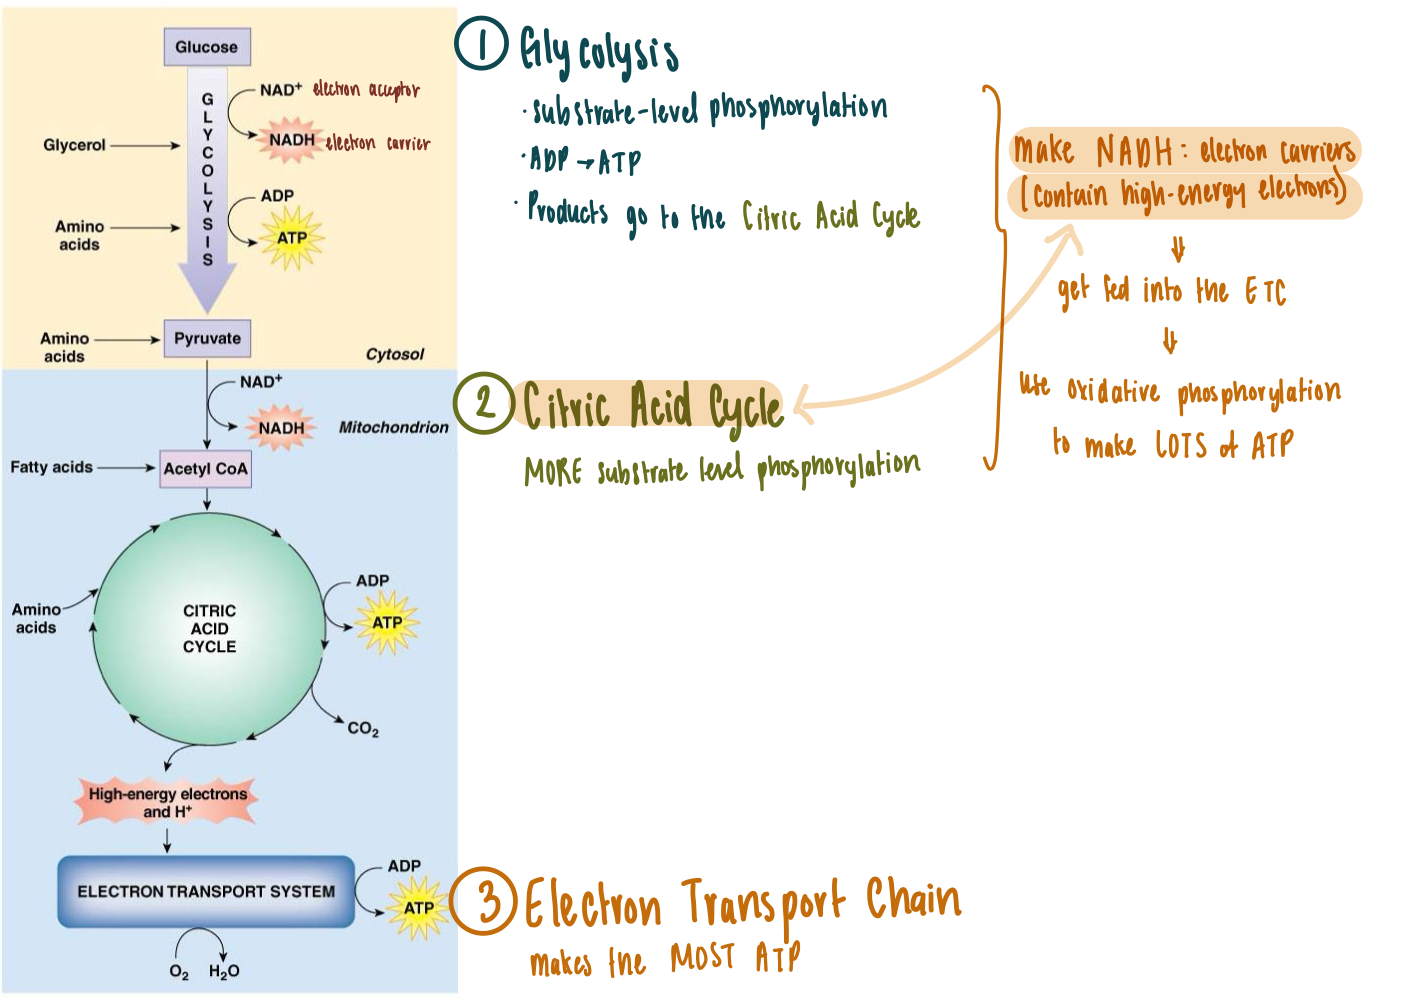 Glucose
GLYCOLYSIS
NAD+ electron acceptor
NADH electron carrier
Glycerol
ADP
ATP
Amino
acids
Amino
acids
Pyruvate
Cytosol
NAD+
NADH
Mitochondrion
Fatty acids
Acetyl CoA
Amino
acids
CITRIC
ACID
CYCLE
ADP
ATP
CO2
High-energy electrons
and H+
ELECTRON TRANSPORT SYSTEM
ADP
ATP
O2 H2O
1 Glycolysis
· substrate-level phosphorylation
· ADP → ATP
· Products go to the Citric Acid Cycle
2 Citric Acid Cycle
MORE substrate level phosphorylation
make NADH: electron carriers
(contain high-energy electrons)
⇓
get fed into the ETC
⇓
use oxidative phosphorylation
to make LOTS of ATP
3 Electron Transport Chain
makes the MOST ATP